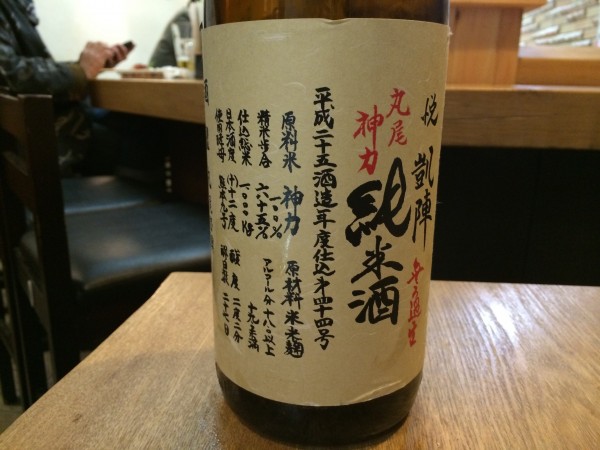 悦 凱陣
丸尾
神力
純米酒
無濾過生
平成二十五酒造年度仕込第四十四号
原料米 神力 一〇〇%
原材料 米 米麹
精米歩合 六十五%
アルコール分 十八以上
十九未満
仕込総米 一〇〇〇kg
日本酒度 (+)十二度
酸度 二度二分
使用酵母 熊本九号